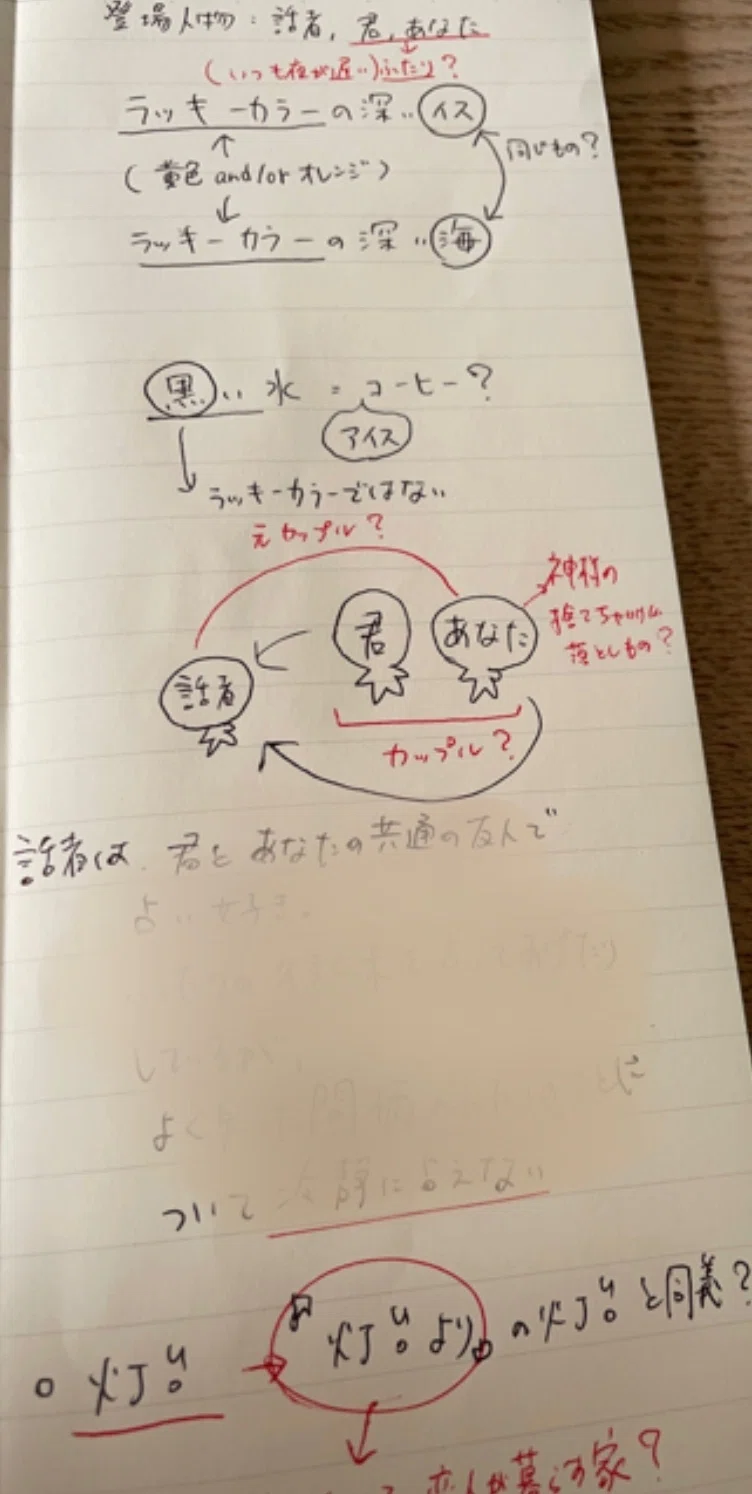 登場人物：話者，君，あなた
(いつも夜が遅い)ふたり？
ラッキーカラーの深いイス
(黄色 and/or オレンジ)
同じもの？
ラッキーカラーの深い海
黒い水 = コーヒー？
アイス
ラッキーカラーではない
元カップル？
君
あなた
神様の
捨てちゃいけない
落としもの？
話者
カップル？
話者は、君とあなたの共通の友人で
占い好き。
しているが、
よく
ついて冷静に占えない
灯り → 『灯りより』の灯りと同義？
恋人が暮らす家？